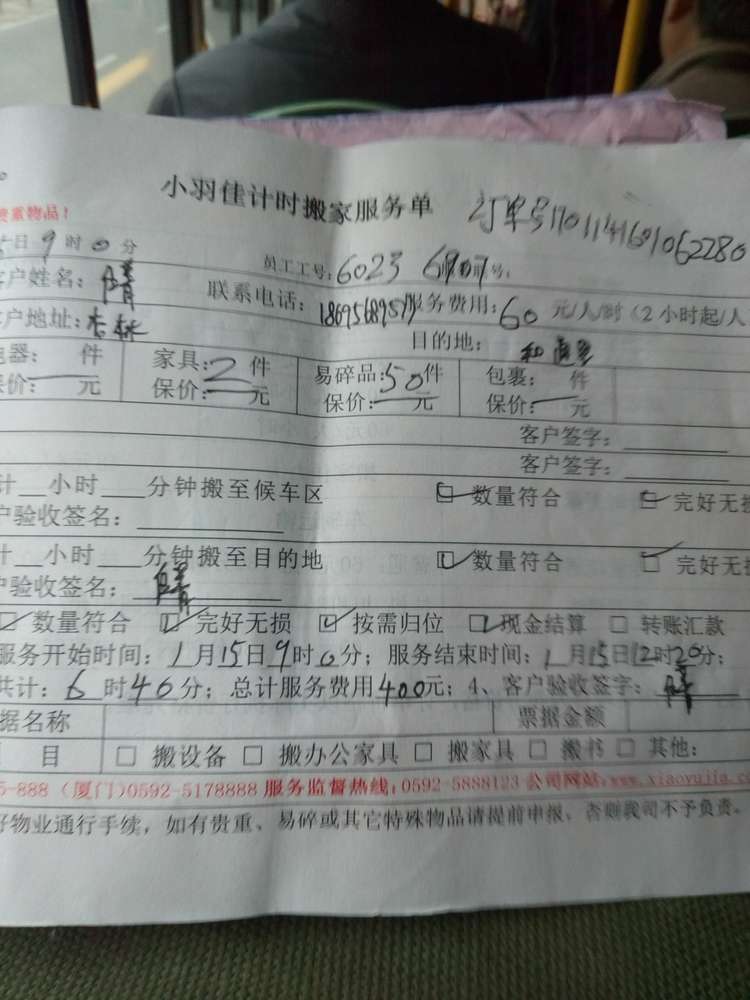 小羽佳计时搬家服务单
订单号1701141601062280
贵重物品！
日9时0分
员工工号：6023
号：
客户姓名：
联系电话：18695689577
服务费用：60元/人/时（2小时起/人
客户地址：杏林
目的地：
电器： 件 家具：2件 易碎品：50件 包裹： 件
保价：一元 保价：一元 保价：一元 保价：一元
客户签字：
客户签字：
计__小时__分钟搬至候车区 数量符合 完好无损
户验收签名：
计__小时__分钟搬至目的地 数量符合 完好无损
户验收签名：
数量符合 完好无损 按需归位 现金结算 转账汇款
服务开始时间：1月15日9时0分；服务结束时间：1月15日12时20分；
共计：6时40分；总计服务费用400元；4、客户验收签字：
据名称 票据金额
目 搬设备 搬办公家具 搬家具 搬书 其他：
5-888（厦门）0592-5178888 服务监督热线：0592-5888123 公司网站：www.xiaoyujia.c
好物业通行手续，如有贵重、易碎或其它特殊物品请提前申报，否则我司不予负责。